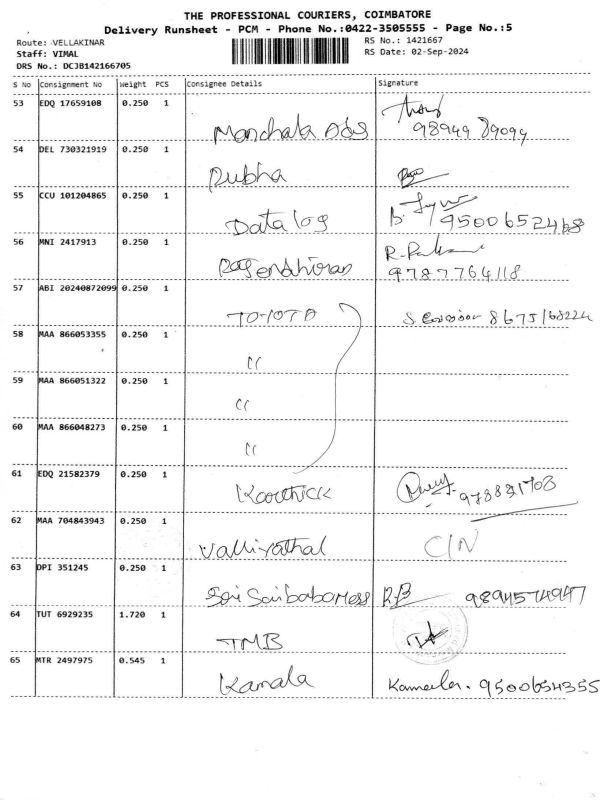 THE PROFESSIONAL COURIERS, COIMBATORE
Delivery Runsheet - PCM - Phone No.:0422-3505555 - Page No.:5
Route: VELLAKINAR
Staff: VIMAL
DRS No.: DCJB142166705
RS No.: 1421667
RS Date: 02-Sep-2024
S No Consignment No Weight PCS Consignee Details Signature
53 EDQ 17659108 0.250 1
Manchala Ads 98949 89094
54 DEL 730321919 0.250 1
Rubha
55 CCU 101204865 0.250 1
Datalog 9500652468
56 MNI 2417913 0.250 1
Rajendhiran 9787764118
57 ABI 20240872099 0.250 1
TOYOTA
58 MAA 866053355 0.250 1
"
59 MAA 866051322 0.250 1
"
60 MAA 866048273 0.250 1
"
61 EDQ 21582379 0.250 1
Karthick
62 MAA 704843943 0.250 1
Valliyathal C/N
63 DPI 351245 0.250 1
Sri Saibaba Mess R.B 9894574947
64 TUT 6929235 1.720 1
TMB
65 MTR 2497975 0.545 1
Kamala 9500654355